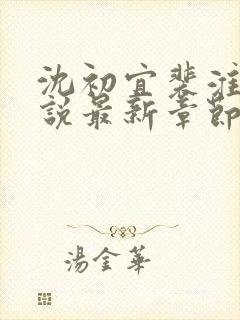 沈初宜裴淮
說最新章節
湯金華